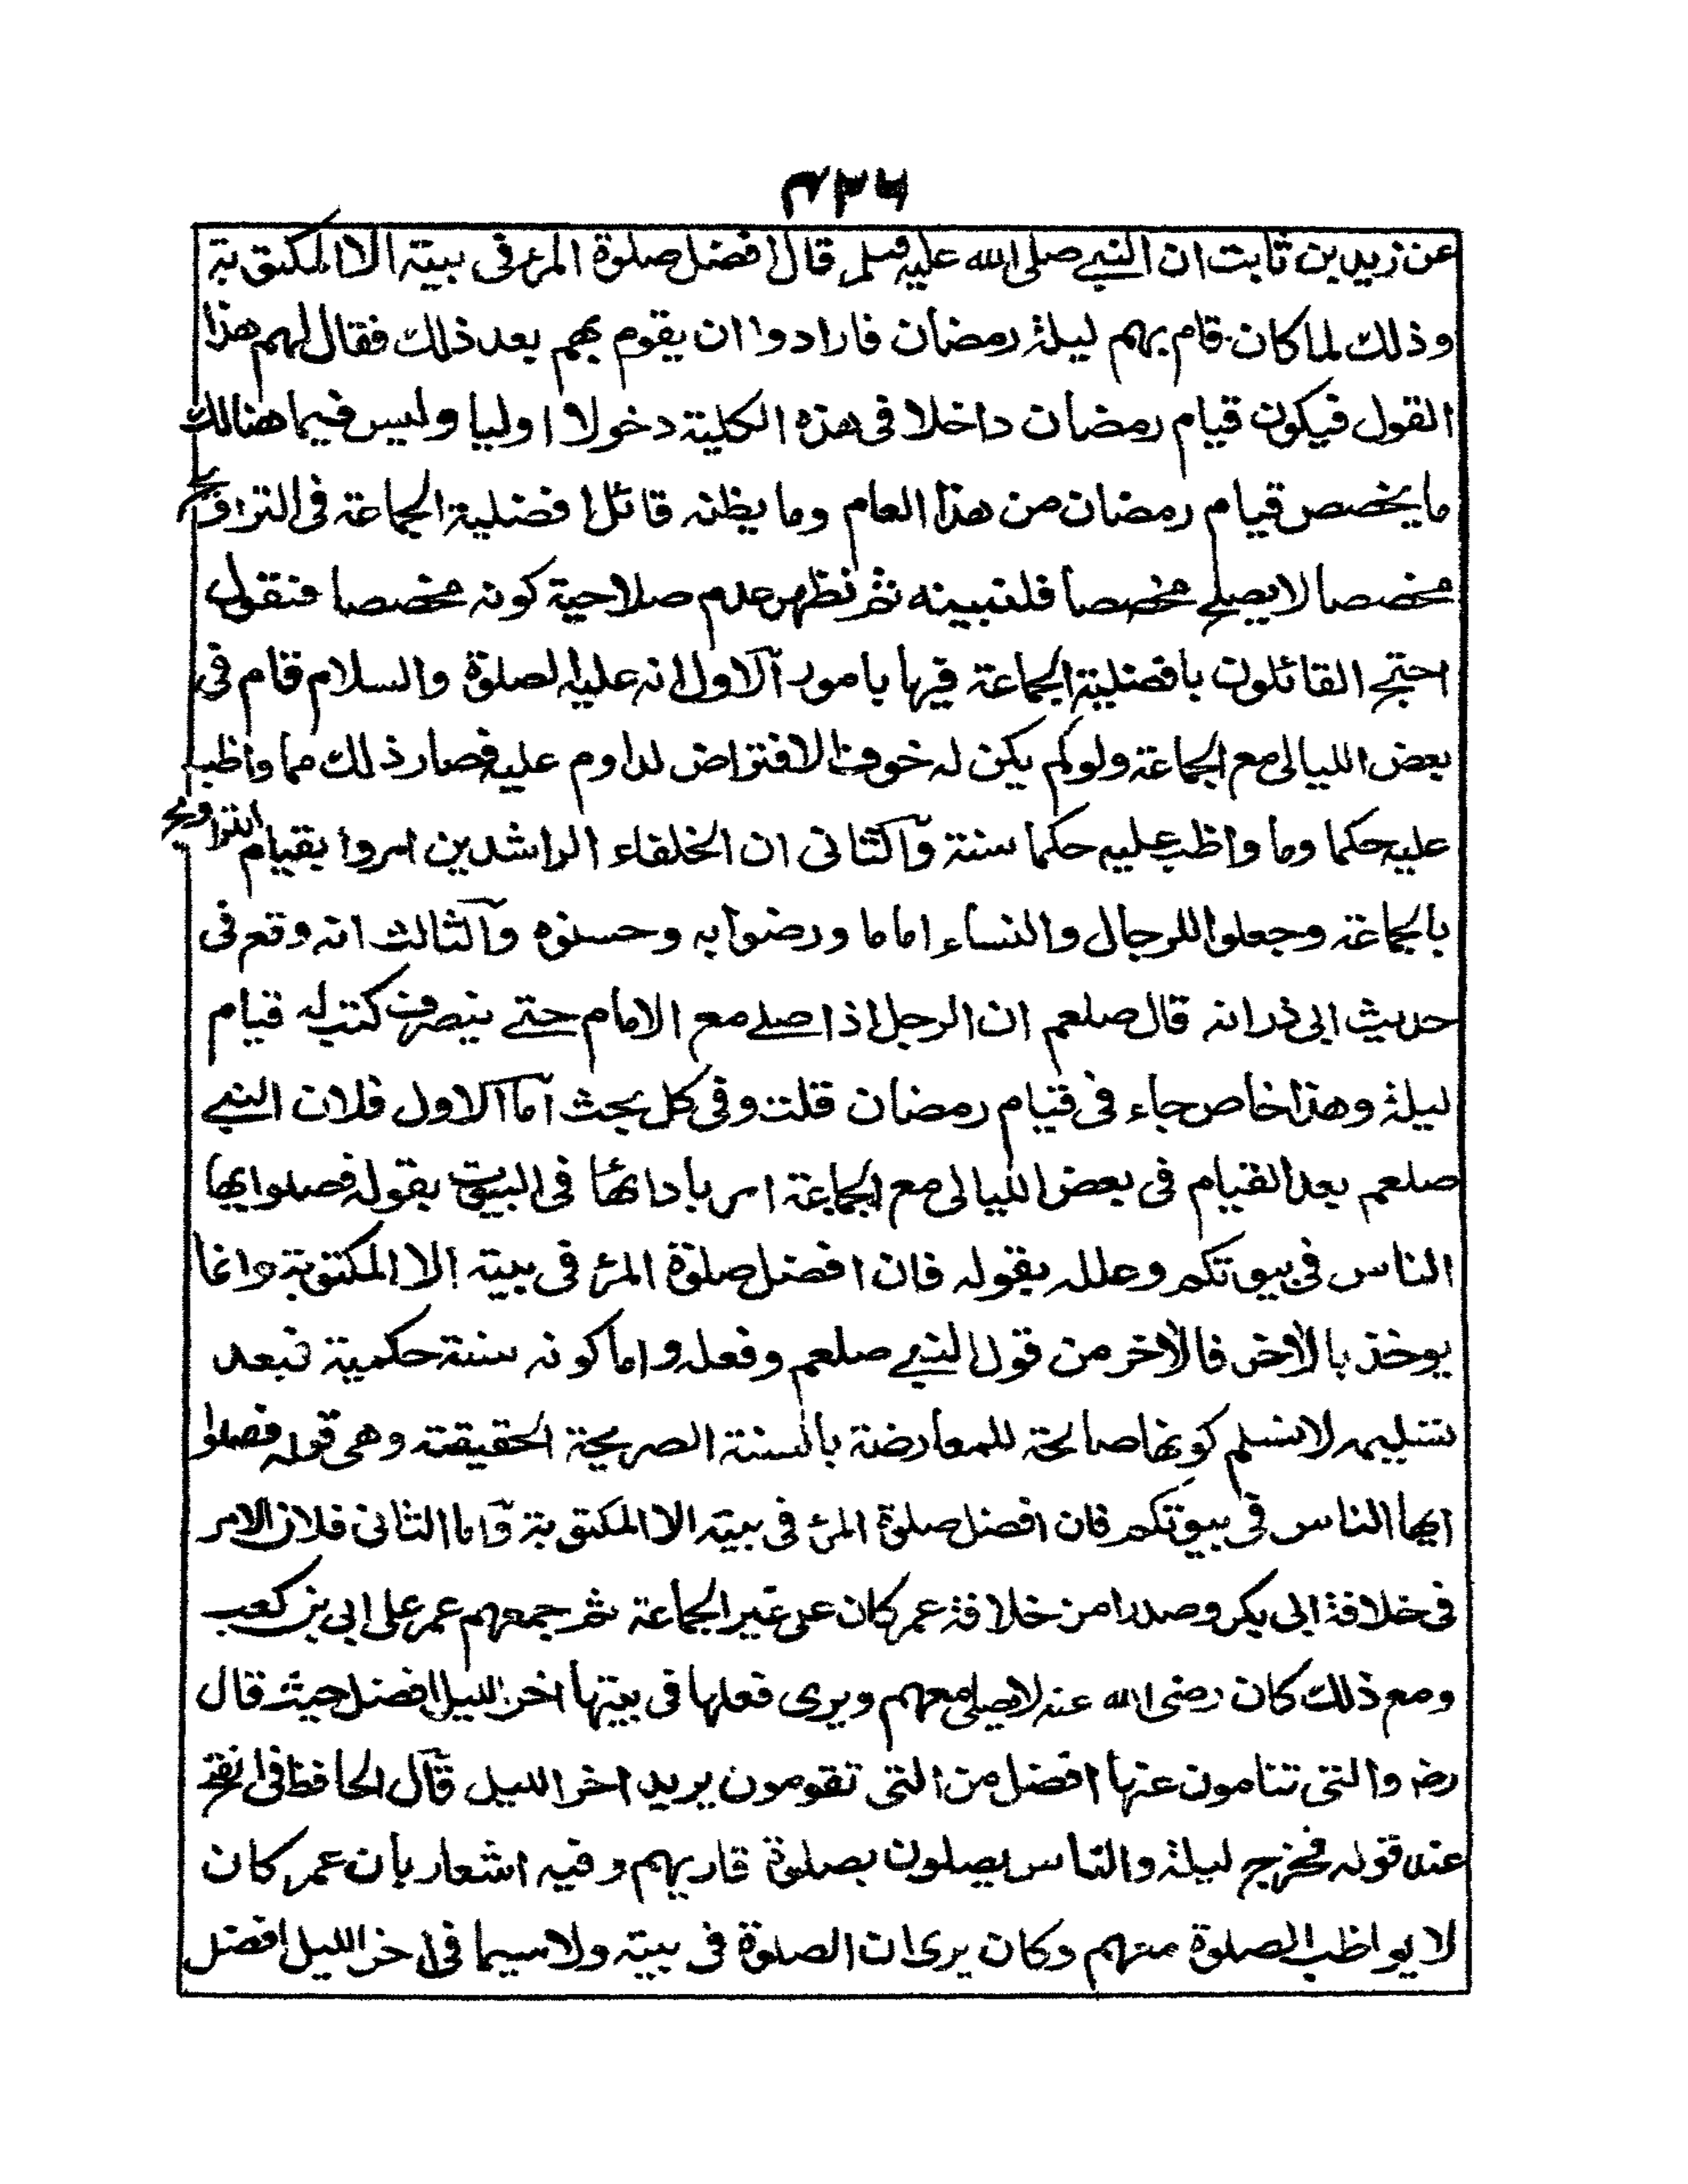 ٣٢٦
عن زيد بن ثابت ان النبي صلى الله عليه وسلم قال افضل صلوة المرء في بيته الا المكتوبة
وذلك لما كان قام بهم ليلة رمضان فارادوا ان يقوم بهم بعد ذلك فقال لهم هذا
القول فيكون قيام رمضان داخلا في هذه الكلية دخولا اوليا وليس فيما هنالك
ما يخصص قيام رمضان من هذا العام وما يظنه قائل افضلية الجماعة في التراويح
مخصصا لا يصلح مخصصا فلنبينه ثم نظهر عدم صلاحية كونه مخصصا فنقول
احتج القائلون بافضلية الجماعة فيها بامور الاول انه عليه الصلوة والسلام قام في
بعض الليالي مع الجماعة ولو لم يكن له خوف الافتراض لداوم عليه فصار ذلك مما واظب
عليه حكما وما واظب عليه حكما سنة والثاني ان الخلفاء الراشدين امروا بقيام التراويح
بالجماعة وجعلوا للرجال والنساء اماما ورضوا به وحسنوه والثالث انه وقع في
حديث ابي ذر انه قال صلعم ان الرجل اذا صلى مع الامام حتى ينصرف كتب له قيام
ليلة وهذا خاص جاء في قيام رمضان قلت وفي كل بحث اما الاول فلان النبي
صلعم بعد القيام في بعض الليالي مع الجماعة امر بادائها في البيوت بقوله فصلوا ايها
الناس في بيوتكم وعلله بقوله فان افضل صلوة المرء في بيته الا المكتوبة وانما
يوخذ بالآخر فالآخر من قول النبي صلعم وفعله واما كونه سنة حكمية فبعد
تسليمه لا نسلم كونها صالحة للمعارضة بالسنة الصريحة الحقيقية وهي قوله فصلوا
ايها الناس في بيوتكم فان افضل صلوة المرء في بيته الا المكتوبة واما الثاني فلان الامر
في خلافة ابي بكر وصدرا من خلافة عمر كان على غير الجماعة ثم جمعهم عمر على ابي بن كعب
ومع ذلك كان رضى الله عنه لا يصلى معهم ويرى فعلها في بيتها اخر الليل افضل حيث قال
رض والتي تنامون عنها افضل من التي تقومون يريد اخر الليل قال الحافظ في الفتح
عند قوله فخرج ليلة والناس يصلون بصلوة قاريهم وفيه اشعار بان عمر كان
لا يواظب الصلوة معهم وكان يرى ان الصلوة في بيته ولا سيما في اخر الليل افضل